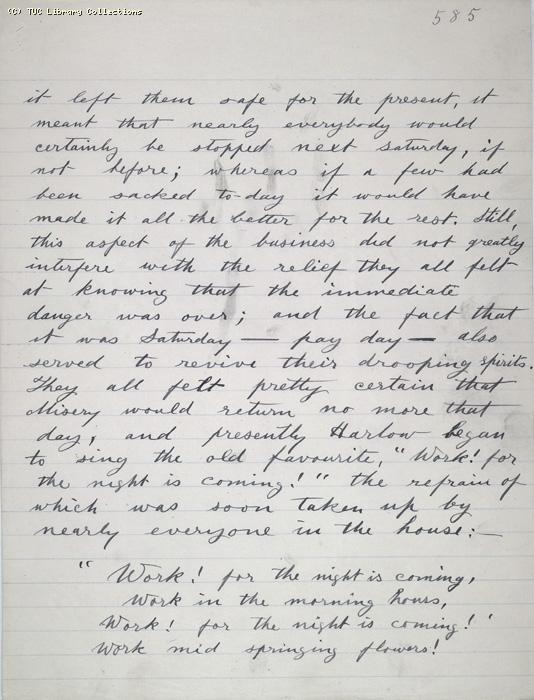 (C) TUC Library Collections
585
it left them safe for the present, it
meant that nearly everybody would
certainly be stopped next Saturday, if
not before; whereas if a few had
been sacked to-day it would have
made it all the better for the rest. Still,
this aspect of the business did not greatly
interfere with the relief they all felt
at knowing that the immediate
danger was over; and the fact that
it was Saturday — pay day — also
served to revive their drooping spirits.
They all felt pretty certain that
Misery would return no more that
day, and presently Harlow began
to sing the old favourite, "Work! for
the night is coming!" the refrain of
which was soon taken up by
nearly everyone in the house:—
"Work! for the night is coming,
Work in the morning hours,
Work! for the night is coming!'
Work mid springing flowers!